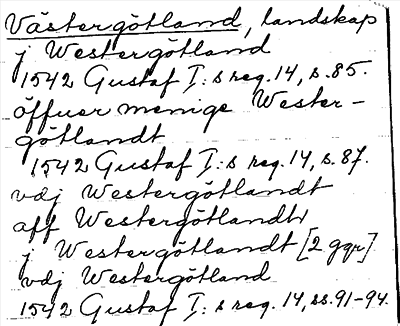 Västergötland, landskap
j Westergötland
1542 Gustaf I:s reg. 14, s. 85.
öffuer menige Wester-
götlandt
1542 Gustaf I:s reg. 14, s. 87.
vdj Westergötlandt
aff Westergötlandt
j Westergötlandt [2 ggr].
vdj Westergötland
1542 Gustaf I:s reg. 14, ss. 91-94.